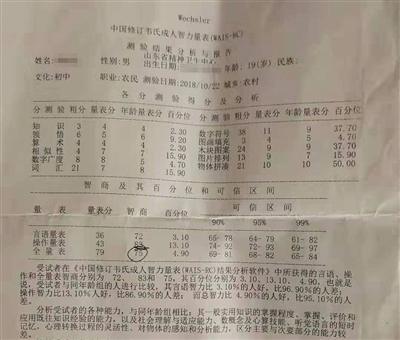 Wechsler
中国修订韦氏成人智力量表(WAIS-RC)
测验结果分析与报告
山东省精神卫生中心
姓名: 性别:男 出生日期: 年龄:19(岁) 民族:
文化:初中 职业:农民 测验日期:2018/10/22 城乡:农村
各分测验得分及分析
分测验 粗分 量表分 年龄量表分 百分位 分测验 粗分 量表分 年龄量表分 百分位
知识 3 4 4 2.30 数字符号 38 11 9 37.70
领悟 6 5 6 9.20 图画填充 3 4
算术 4 4 4 2.30 木块图案 24 9 9 37.70
相似性 4 7 7 15.90 图片排列 13 9 7 15.90
数字广度 8 8 5 物体拼凑 21 10 10 50.00
词汇 21 7 8 15.90
智商及其百分位和可信区间
可信区间
量表 量表分 智商 百分位 90% 95% 99%
言语量表 36 72 3.10 65- 78 64- 79 61- 82
操作量表 43 83 13.10 74- 92 72- 93 69- 97
全量表 79 75 4.90 69- 81 68- 82 65- 84
受试者在《中国修订韦氏成人智力量表(WAIS-RC)结果分析软件》中所获得的言语、操
作和全量表智商分别为 72、 83和 75，其百分位分别为 3.10、13.10、4.90。也就是
说，受试者与同年龄组的人进行比较，其言语智力比 3.10%的人好，比96.90%的人差；
操作智力比13.10%人好，比86.90%的人差； 而总智力比 4.90%的人好，比95.10%的人
差。
分析受试者的各种能力，与同年龄组相比：其一般实用知识的掌握程度、掌握、评价和
应用既往知识经验的能力，以及社会理解与适应能力、数概念及心算技能、听觉言语的短时
记忆、心理转换过程的灵活性、对物体的感知和分析能力，区分主要与次要部分的能力较